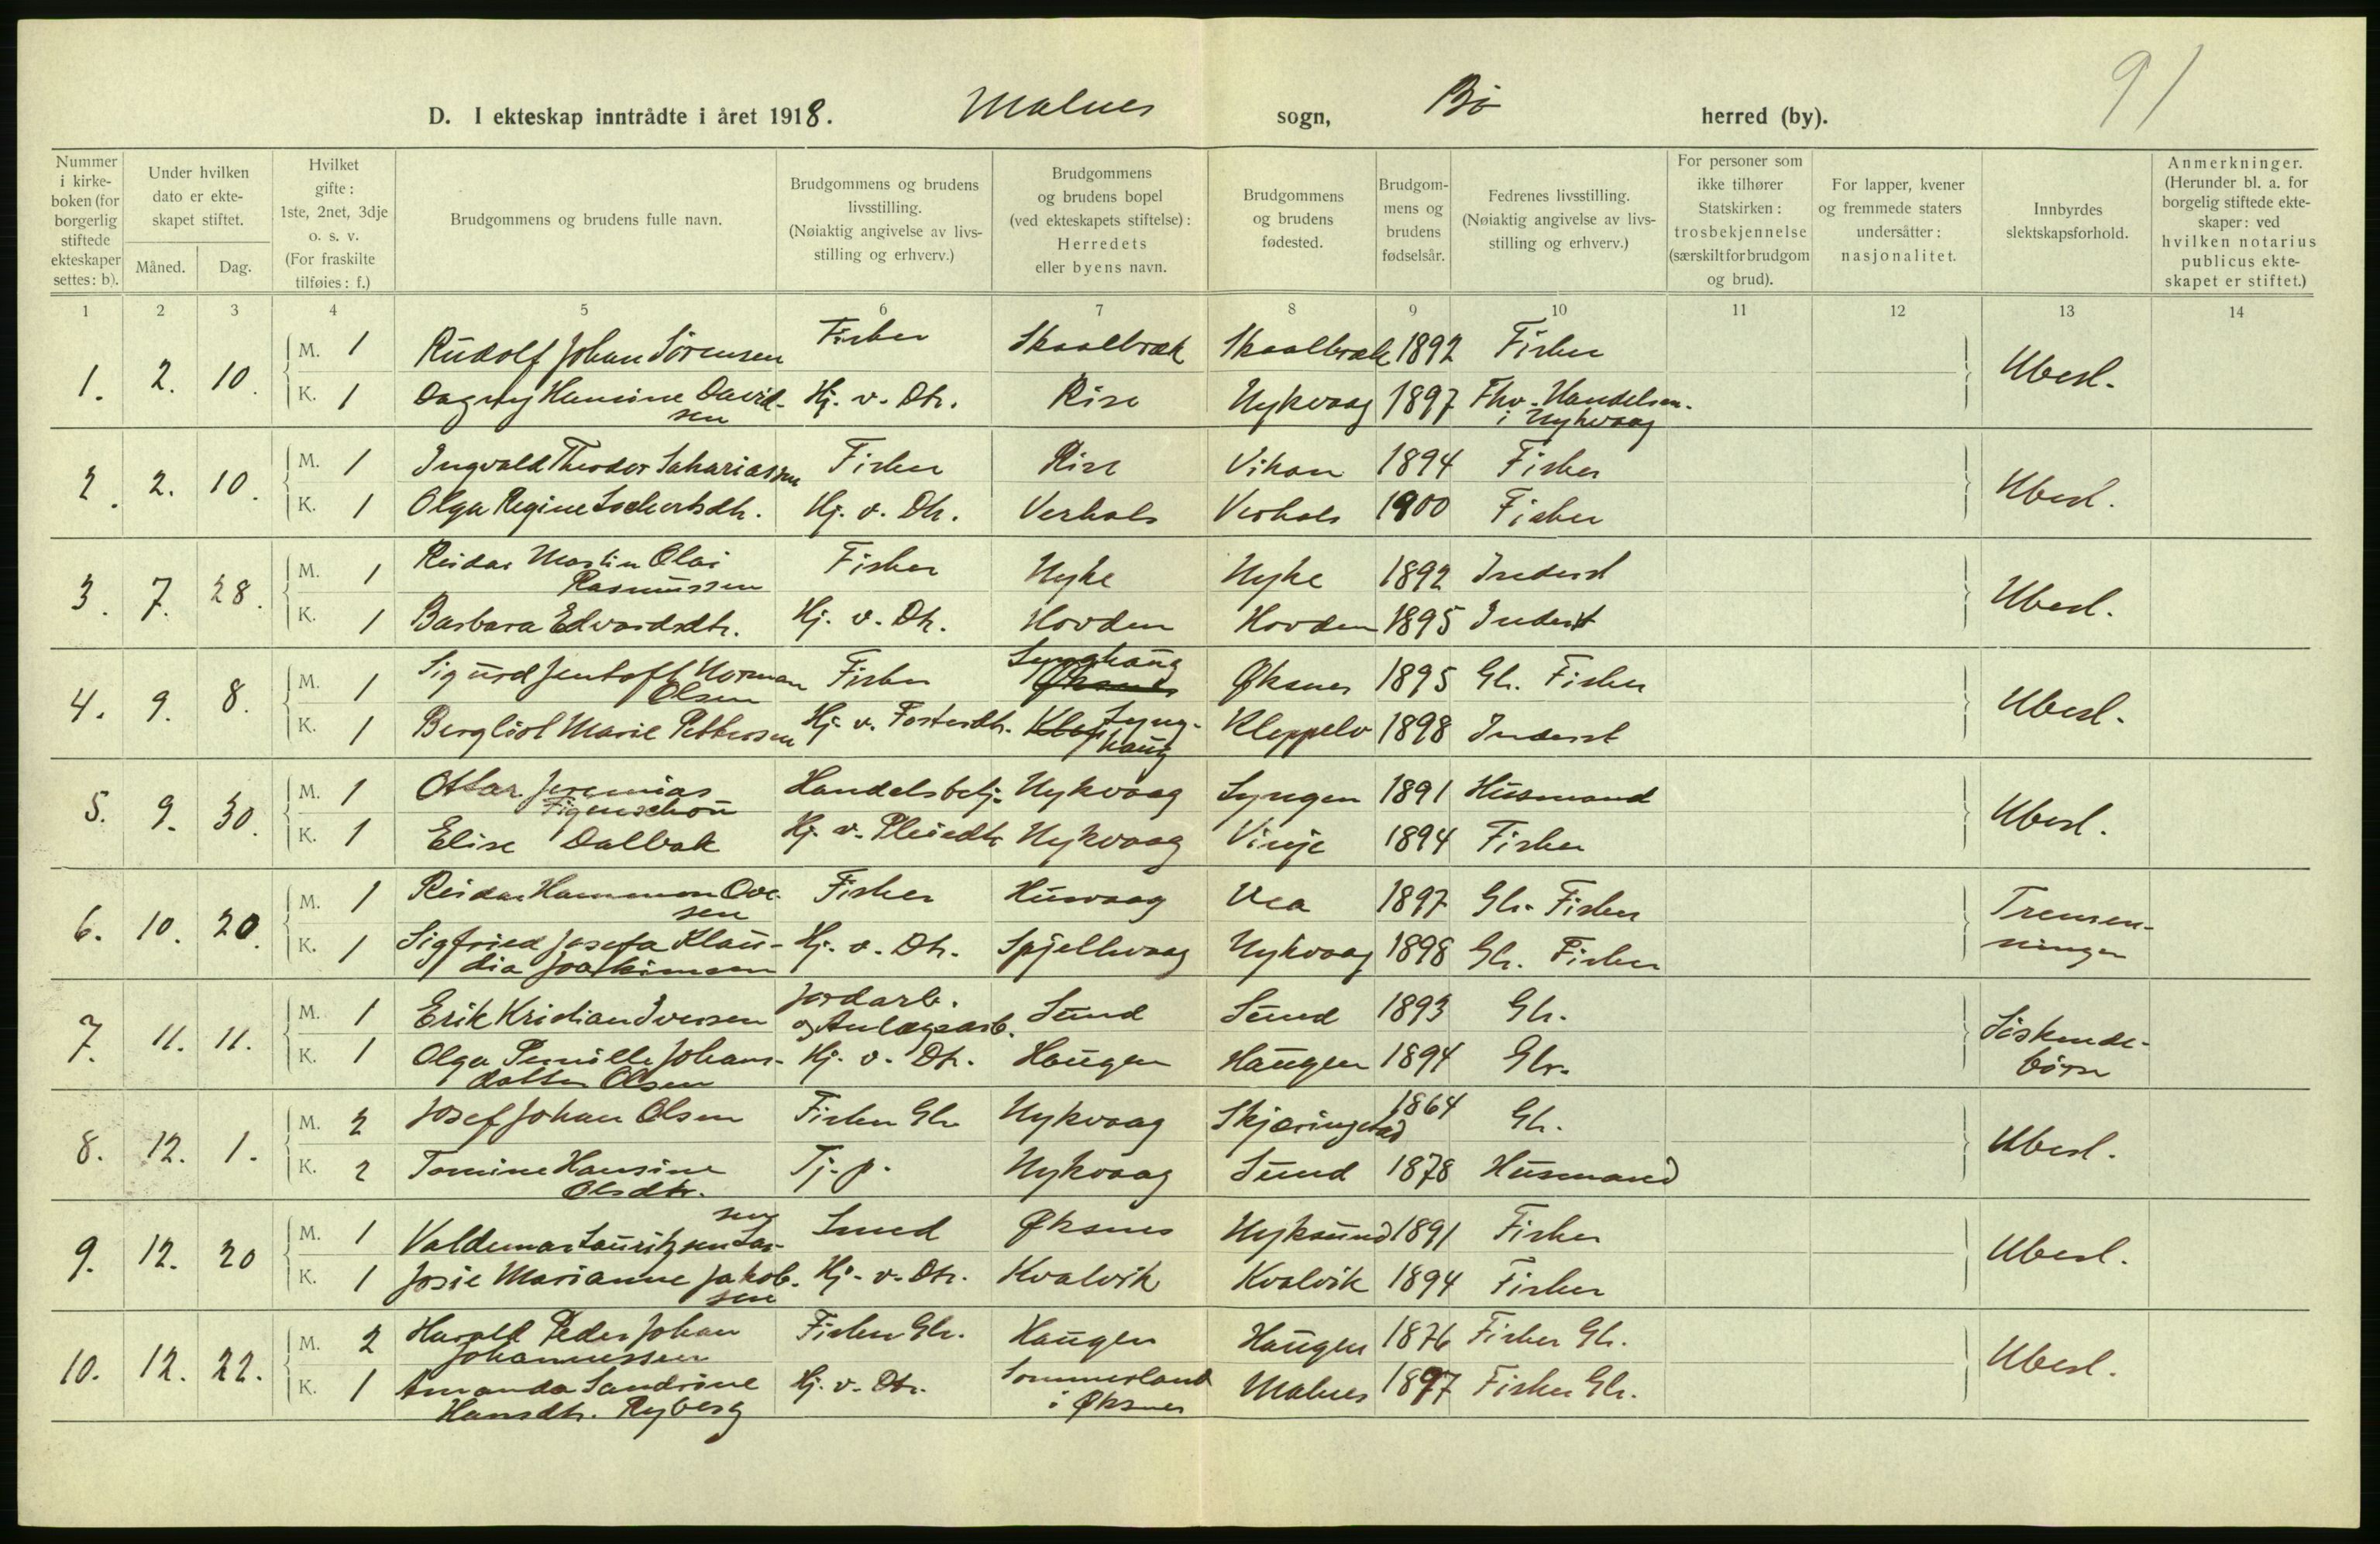 91
D. I ekteskap inntrådte i året 1918. Malnes sogn, Bø herred (by).
Nummer i kirkeboken (for borgerlig stiftede ekteskaper settes: b).
Under hvilken dato er ekteskapet stiftet.
Måned. Dag.
Hvilket gifte: 1ste, 2net, 3dje o. s. v. (For fraskilte tilføies: f.)
Brudgommens og brudens fulle navn.
Brudgommens og brudens livsstilling. (Nøiaktig angivelse av livsstilling og erhverv.)
Brudgommens og brudens bopel (ved ekteskapets stiftelse): Herredets eller byens navn.
Brudgommens og brudens fødested.
Brudgommens og brudens fødselsår.
Fedrenes livsstilling. (Nøiaktig angivelse av livsstilling og erhverv.)
For personer som ikke tilhører Statskirken: trosbekjennelse (særskilt for brudgom og brud).
For lapper, kvener og fremmede staters undersåtter: nasjonalitet.
Innbyrdes slektskapsforhold.
Anmerkninger. (Herunder bl. a. for borgelig stiftede ekteskaper: ved hvilken notarius publicus ekteskapet er stiftet.)
1 2 3 4 5 6 7 8 9 10 11 12 13 14
1. 2. 10. M. 1 Rudolf Johan Sörensen Fisker Skaalbræk Skaalbræk 1892 Fisker Ubesl.
K. 1 Dagny Hansine Davidsen Hj. v. Dtr. Rise Nykvaag 1897 Fhv. Handelsm. i Nykvaag
2. 2. 10. M. 1 Ingvald Theodor Sakariassen Fisker Rise Vikan 1894 Fisker Ubesl.
K. 1 Olga Regine Lockertsdtr. Hj. v. Dtr. Verhals Verhals 1900 Fisker
3. 7. 28. M. 1 Reidar Martin Olai Rasmussen Fisker Nyke Nyke 1892 Inderst Ubesl.
K. 1 Barbara Edvardsdtr. Hj. v. Dtr. Hovden Hovden 1895 Inderst
4. 9. 8. M. 1 Sigurd Jentoft Norman Olsen Fisker Lynghaug Øksnes Øksnes 1895 Gbr. Fisker Ubesl.
K. 1 Bergliot Marie Pettersen Hj. v. Fosterdtr. Lynghaug Kleppelv 1898 Inderst
5. 9. 30. M. 1 Ottar Jeremias Figenschou Handelsbetj. Nykvaag Lyngen 1891 Husmand Ubesl.
K. 1 Elise Dalbak Hj. v. Pleiedtr. Nykvaag Vinje 1894 Fisker
6. 10. 20. M. 1 Reidar Hammon Ovesen Fisker Husvaag Vea 1897 Gbr. Fisker Tremenninger
K. 1 Sigfried Josefa Klaudia Joakimsen Hj. v. Dtr. Spjelkvaag Nykvaag 1898 Gbr. Fisker
7. 11. 11. M. 1 Erik Kristian Iversen Jordarb. og Anlægsarb. Sund Sund 1893 Gbr. Söskendebörn
K. 1 Olga Pernille Johansdatter Olsen Hj. v. Dtr. Haugen Haugen 1894 Gbr.
8. 12. 1. M. 2 Josef Johan Olsen Fisker Gbr. Nykvaag Skjæringstad 1864 Gbr. Ubesl.
K. 2 Tomine Hansine Olsdtr. Tj. p. Nykvaag Sund 1878 Husmand
9. 12. 20 M. 1 Valdemar Lauritzsen Larsen Smed Øksnes Nyksund 1891 Fisker Ubesl.
K. 1 Josie Marianne Jakobsen Hj. v. Dtr. Kvalvik Kvalvik 1894 Fisker
10. 12. 22. M. 2 Harald Peder Johan Johannessen Fisker Gbr. Haugen Haugen 1876 Fisker Gbr. Ubesl.
K. 1 Amanda Sandrine Hansdtr. Ryberg Hj. v. Dtr. Sommerland i Øksnes Malnes 1897 Fisker Gbr.